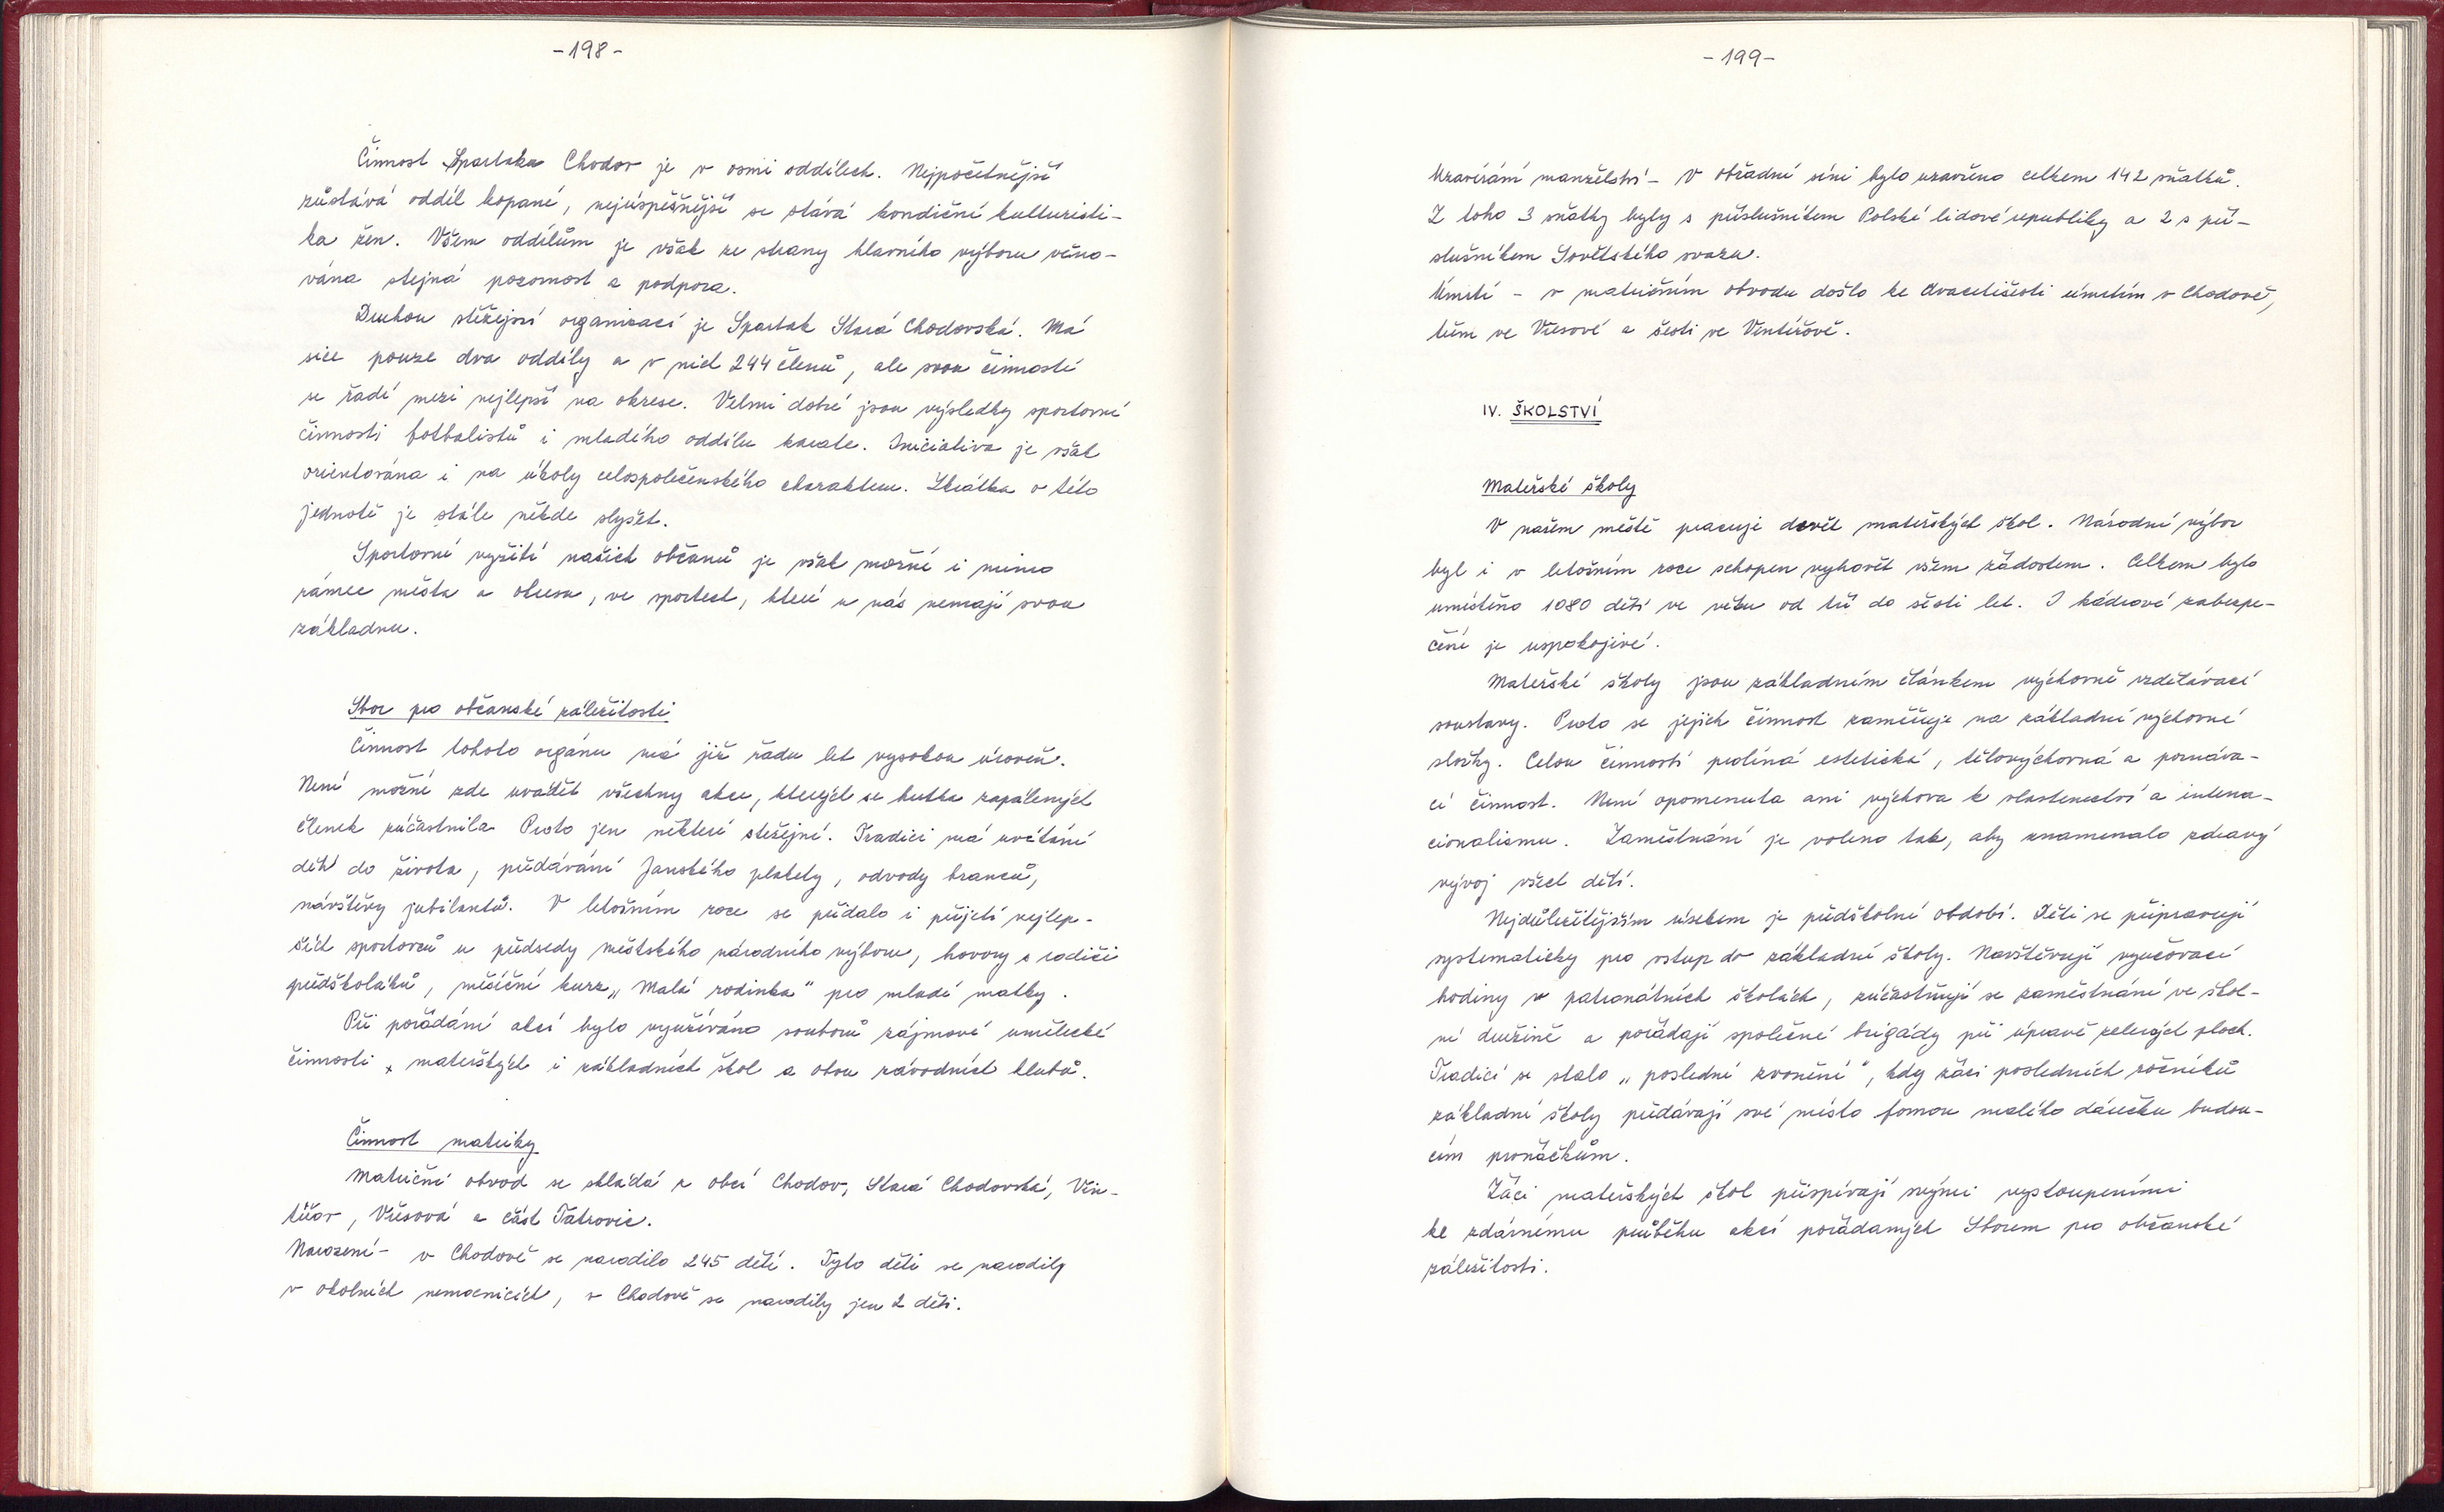 -198-
Činnost Spartaku Chodov je v osmi oddílech. Nejpočetnější
zůstává oddíl kopané, nejúspěšnější se stává kondiční kulturisti-
ka žen. Všem oddílům je však ze strany hlavního výboru věno-
vána stejná pozornost a podpora.
Druhou stěžejní organizací je Spartak Stará Chodovská. Má
sice pouze dva oddíly a v nich 244 členů, ale svou činností
se řadí mezi nejlepší na okrese. Velmi dobré jsou výsledky sportovní
činnosti fotbalistů i mladého oddílu karate. Iniciativa je však
orientována i na úkoly celospolečenského charakteru. Zkrátka o této
jednotě je stále někde slyšet.
Sportovní vyžití našich občanů je však možné i mimo
rámec města a okresu, ve sportech, které u nás nemají svou
základnu.
Sbor pro občanské záležitosti
Činnost tohoto orgánu má již řadu let vysokou úroveň.
Není možné zde uvádět všechny akce, kterých se hrstka zapálených
členek zúčastnila. Proto jen některé stěžejní. Tradici má uvítání
dětí do života, předávání Janského plakety, odvody branců,
návštěvy jubilantů. V letošním roce se přidalo i přijetí nejlep-
ších sportovců u předsedy městského národního výboru, hovory s rodiči
předškoláků, měsíční kurz „Malá rodinka" pro mladé matky.
Při pořádání akcí bylo využíváno souborů zájmové umělecké
činnosti x mateřských i základních škol a obou závodních klubů.
Činnost matriky
Matriční obvod se skládá z obcí Chodov, Stará Chodovská, Vin-
tířov, Vřesová a část Tatrovic.
Narození - v Chodově se narodilo 245 dětí. Tyto děti se narodily
v okolních nemocnicích, v Chodově se narodily jen 2 děti.
-199-
Uzavírání manželství - V obřadní síni bylo uzavřeno celkem 142 sňatků.
Z toho 3 sňatky byly s příslušníkem Polské lidové republiky a 2 s pří-
slušníkem Sovětského svazu.
Úmrtí - v matričním obvodu došlo ke dvacetišesti úmrtím v Chodově,
třem ve Vřesové a šesti ve Vintířově.
IV. ŠKOLSTVÍ
Mateřské školy
V našem městě pracuje devět mateřských škol. Národní výbor
byl i v letošním roce schopen vyhovět všem žádostem. Celkem bylo
umístěno 1080 dětí ve věku od tří do šesti let. I kádrové zabezpe-
čení je uspokojivé.
Mateřské školy jsou základním článkem výchovně vzdělávací
soustavy. Proto se jejich činnost zaměřuje na základní výchovné
složky. Celou činností prolíná estetická, tělovýchovná a poznáva-
cí činnost. Není opomenuta ani výchova k vlastenectví a interna-
cionalismu. Zaměstnání je voleno tak, aby znamenalo zdravý
vývoj všech dětí.
Nejdůležitějším úsekem je předškolní období. Děti se připravují
systematicky pro vstup do základní školy. Navštěvují vyučovací
hodiny v patronátních školách, zúčastňují se zaměstnání ve škol-
ní družině a pořádají společné brigády při úpravě zelených ploch.
Tradicí se stalo „poslední zvonění", kdy žáci posledních ročníků
základní školy předávají své místo formou malého dárečku budou-
cím prvňáčkům.
Žáci mateřských škol přispívají svými vystoupeními
ke zdárnému průběhu akcí pořádaných Sborem pro občanské
záležitosti.